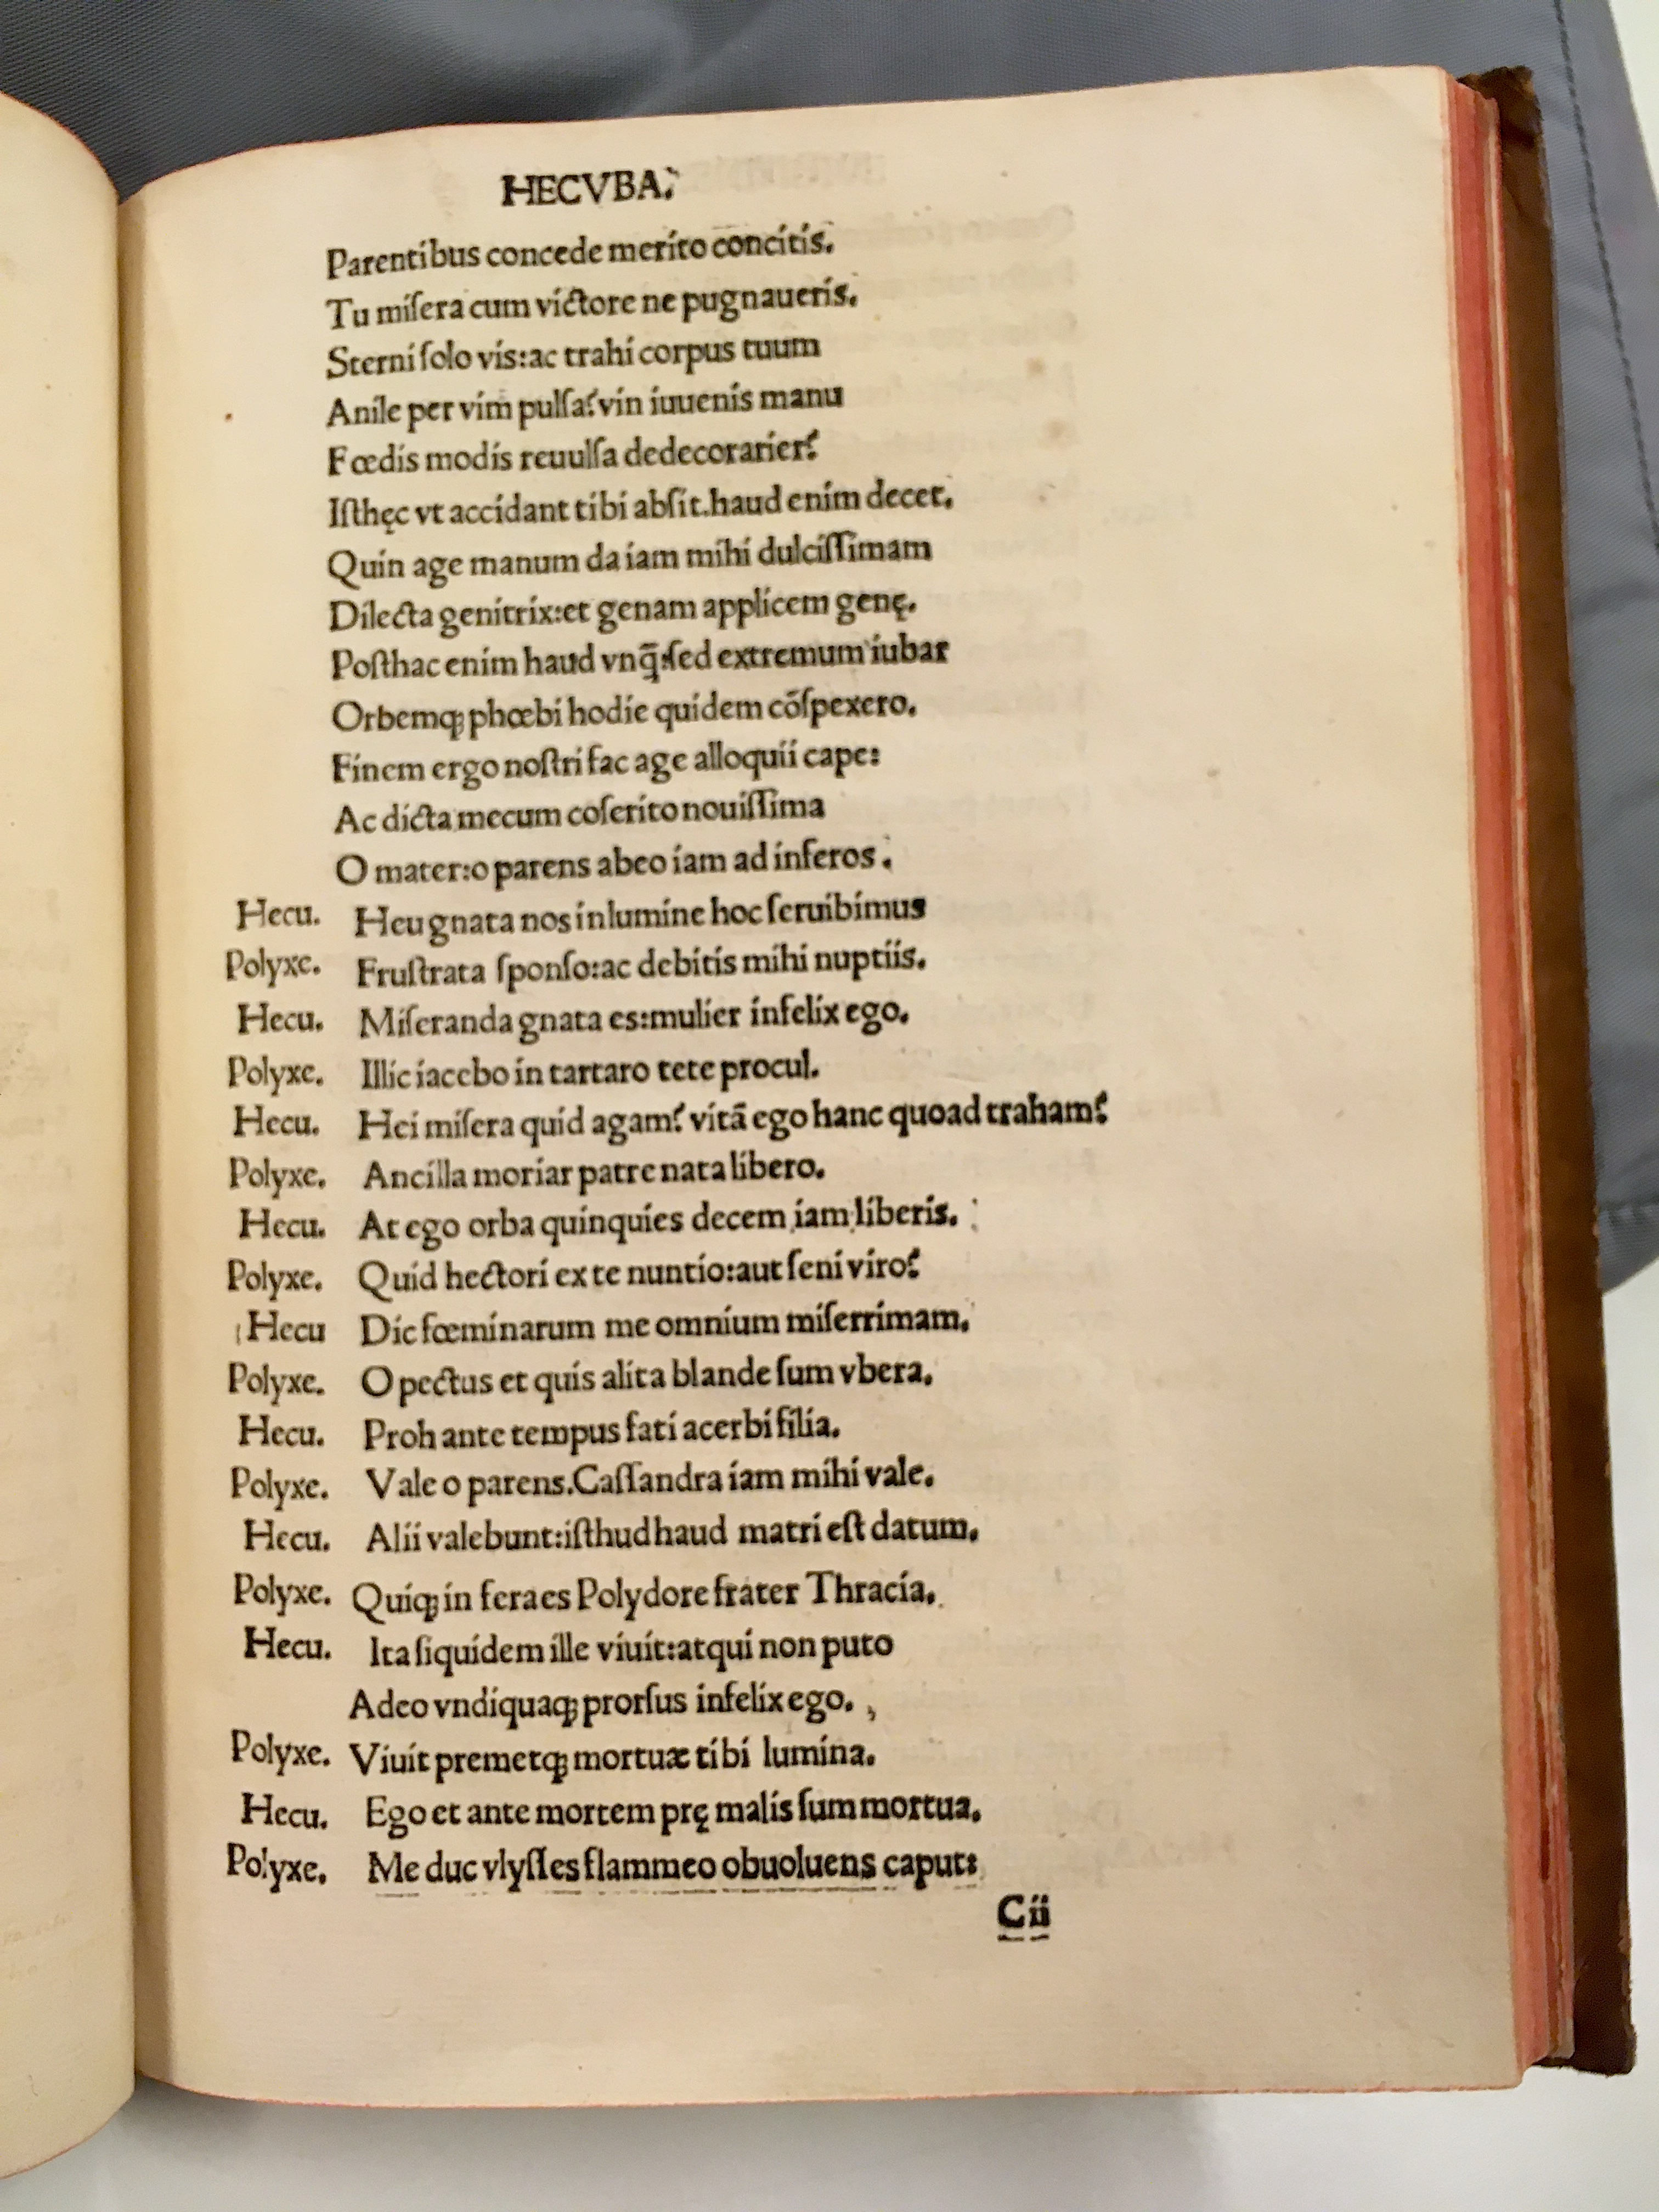 HECVBA.
Parentibus concede merito concitis.
Tu miſera cum victore ne pugnaueris.
Sterni ſolo vis:ac trahi corpus tuum
Anile per vim pulſa? vin iuuenis manu
Fœdis modis reuulſa dedecorarier?
Iſthęc vt accidant tibi abſit.haud enim decet.
Quin age manum da iam mihi dulciſſimam
Dilecta genitrix:et genam applicem genę.
Poſthac enim haud vnq̃:ſed extremum iubar
Orbemꝗ phœbi hodie quidem cõſpexero.
Finem ergo noſtri fac age alloquii cape:
Ac dicta mecum coſerito nouiſſima
O mater:o parens abeo iam ad inferos.
Hecu. Heu gnata nos in lumine hoc ſeruibimus
Polyxe. Fruſtrata ſponſo:ac debitis mihi nuptiis.
Hecu. Miſeranda gnata es:mulier infelix ego.
Polyxe. Illic iacebo in tartaro te te procul.
Hecu. Hei miſera quid agam? vitã ego hanc quoad traham?
Polyxe. Ancilla moriar patre nata libero.
Hecu. At ego orba quinquies decem iam liberis.
Polyxe. Quid hectori ex te nuntio:aut ſeni viro?
Hecu Dic fœminarum me omnium miſerrimam.
Polyxe. O pectus et quis alita blande ſum vbera.
Hecu. Proh ante tempus fati acerbi filia.
Polyxe. Vale o parens.Caſſandra iam mihi vale.
Hecu. Alii valebunt:iſthud haud matri eſt datum.
Polyxe. Quiꝗ in fera es Polydore frater Thracia.
Hecu. Ita ſiquidem ille viuit:atqui non puto
Adeo vndiquaꝗ prorſus infelix ego.
Polyxe. Viuit premetꝗ mortuæ tibi lumina.
Hecu. Ego et ante mortem prę malis ſum mortua.
Polyxe. Me duc vlyſſes flammeo obuoluens caput:
Cii